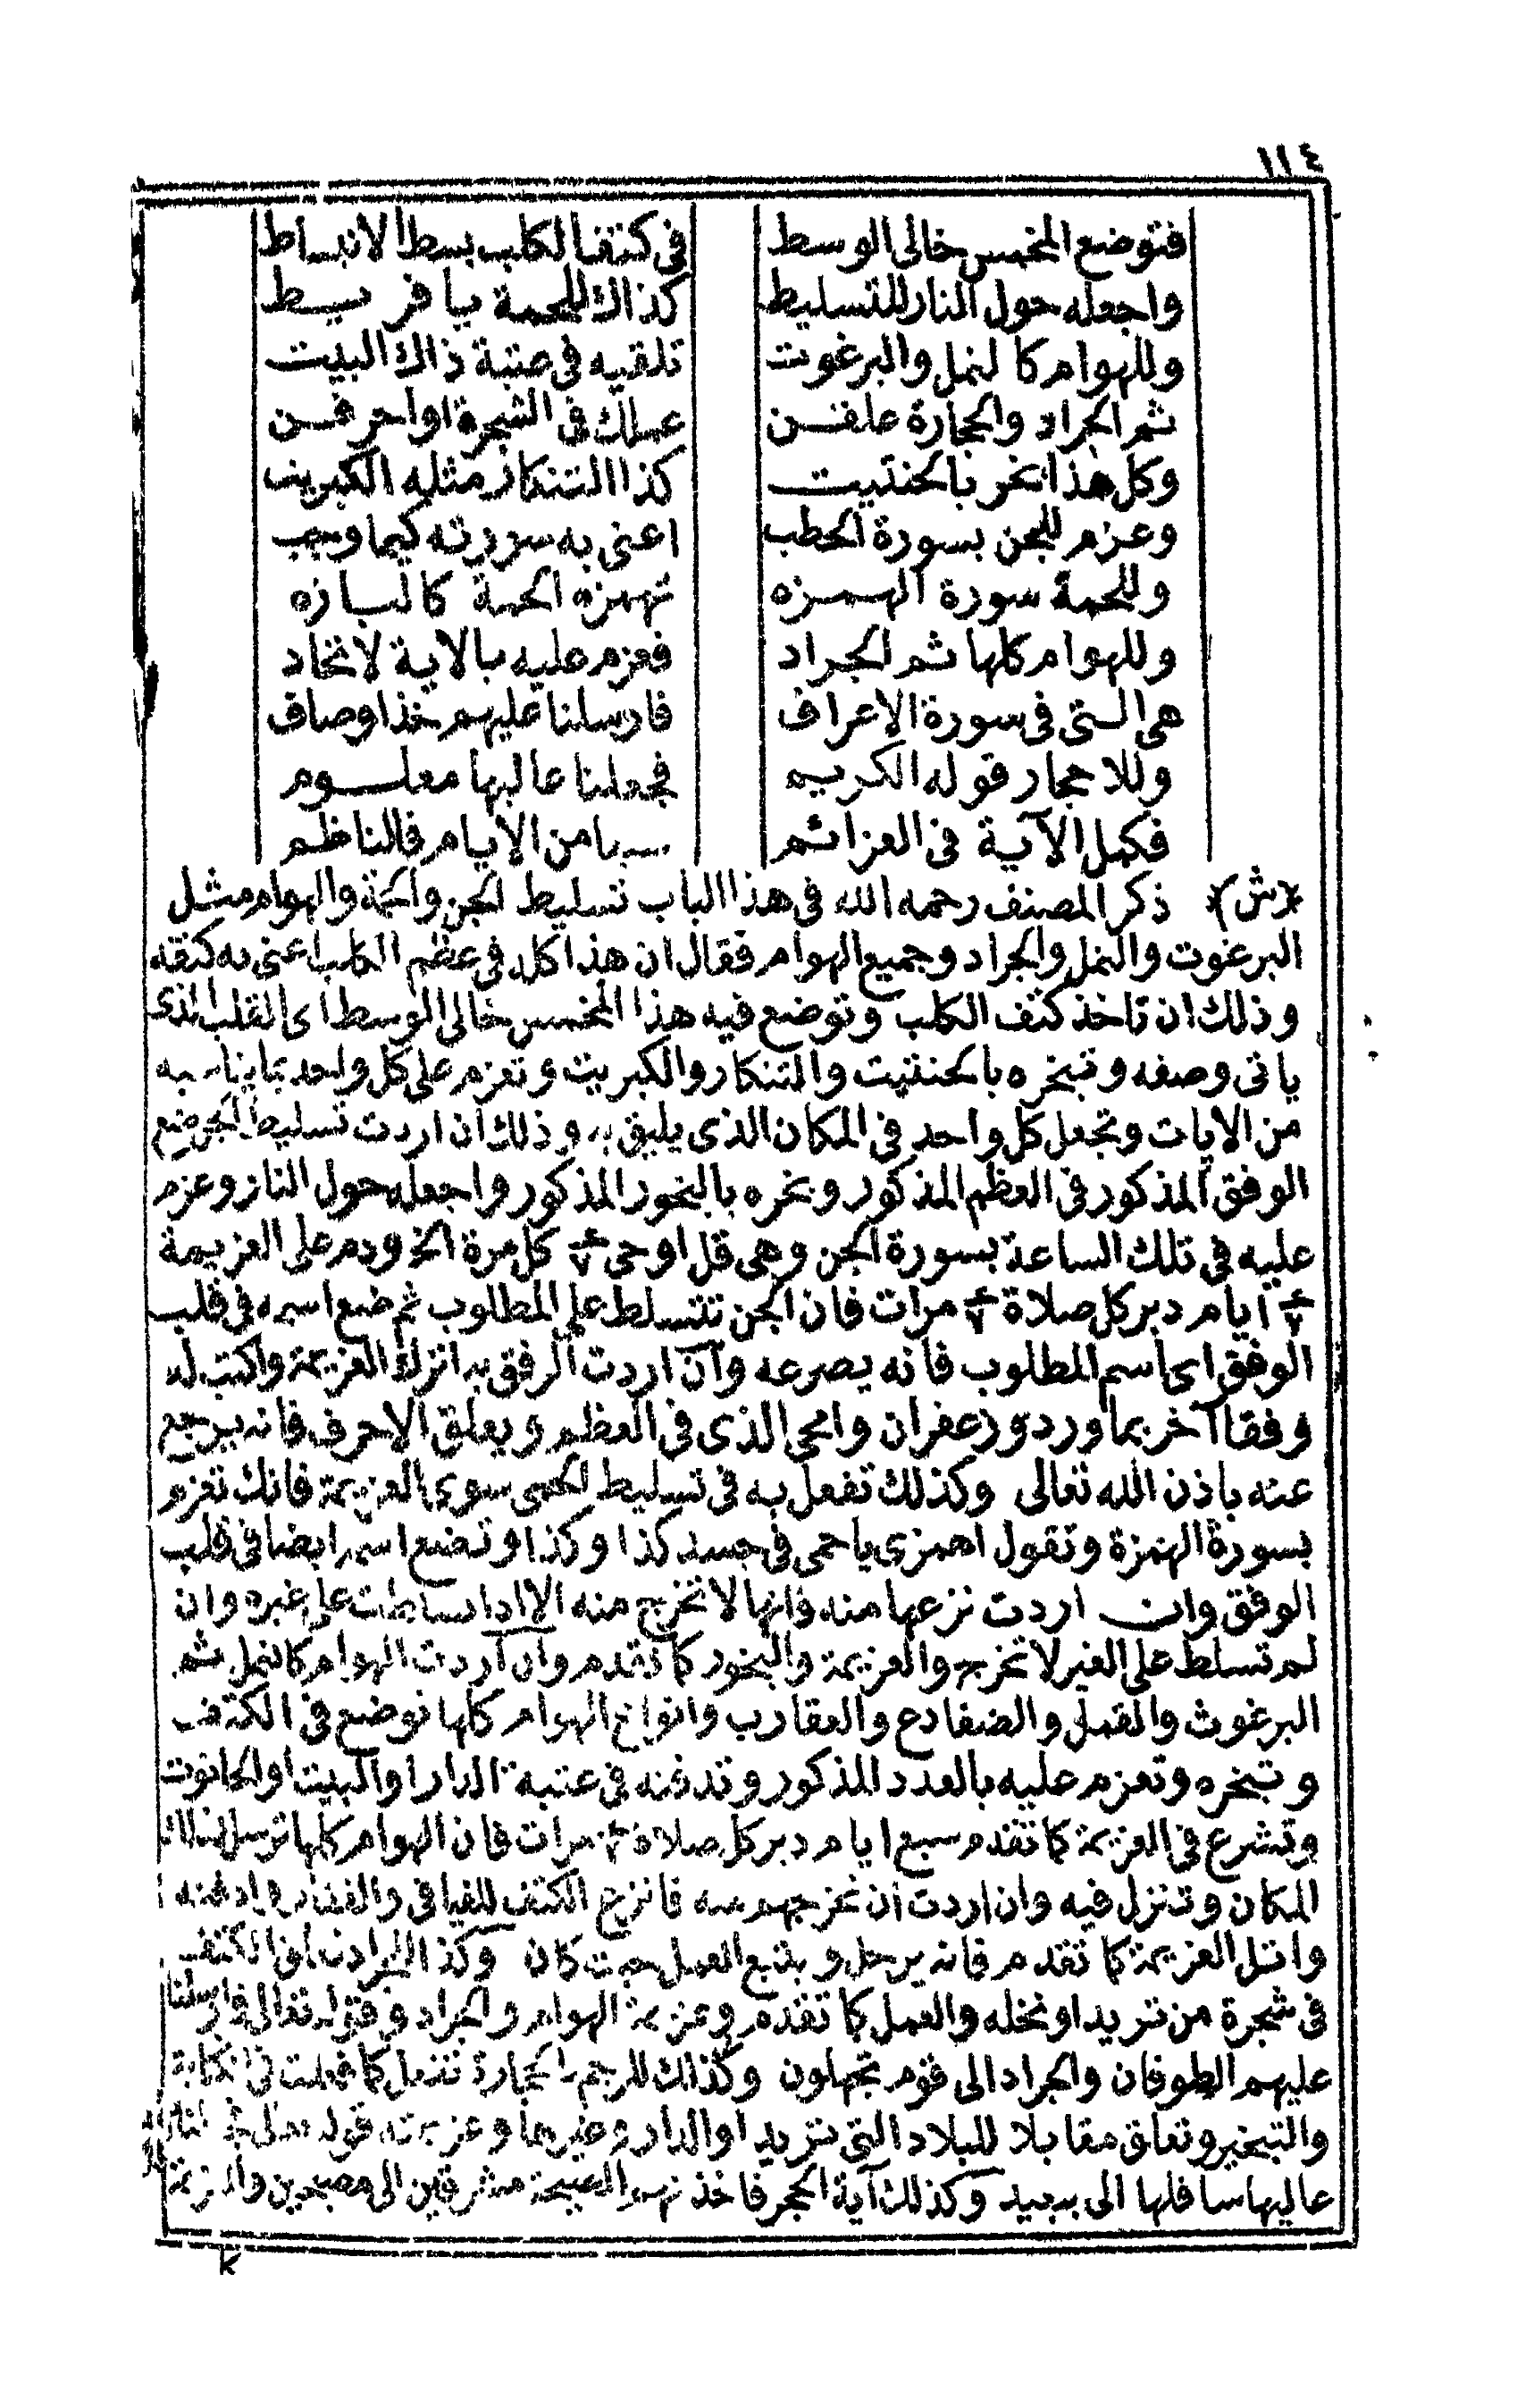 ١١٤
فتوضع المخمس خالى الوسط في كتفا الكلب بسط الانبساط
واجعله حول النار للتسليط كذاك للحمة يا فر يسط
وللهوام كالنمل والبرغوت تلقيه فى عتبة ذاك البيت
ثم الجراد والحجارة علقن عملك فى الشجرة اواحرقن
وكل هذا بخر بالحنتيت كذا التنكار مثله الكبريت
وعزم للجن بسورة الخطب اعنى به سورته كيما وجب
وللحمة سورة الهمزه تهمزه الحمة كالبازه
وللهوام كلها ثم الجراد فعزم عليه بالاية لاتحاد
هى التى فى سورة الاعراف فارسلنا عليهم خذا وصاف
وللاحجار قوله الكريم فجعلنا عاليها معلوم
فكمل الآية فى العزائم من الايام قالناظم
(ش) ذكر المصنف رحمه الله فى هذا الباب تسليط الجن والحمة والهوام مثل
البرغوت والنمل والجراد وجميع الهوام فقال ان هذا كله فى عظم الكلب اعنى به كتفه
وذلك ان تاخذ كتف الكلب وتوضع فيه هذا المخمس خالى الوسط اى القلب الذى
ياتى وصفه وتبخره بالحنتيت والتنكار والكبريت وتعزم على كل واحد بما يناسبه
من الايات وتجعل كل واحد فى المكان الذى يليق به وذلك ان اردت تسليط الجن ضع
الوفق المذكور فى العظم المذكور وبخره بالبخور المذكور واجعله حول النار وعزم
عليه فى تلك الساعة بسورة الجن وهى قل اوحى ٧ كل مرة الخ ودم على العزيمة
٧ ايام دبر كل صلاة ٧ مرات فان الجن تتسلط على المطلوب ثم ضع اسمه فى قلب
الوفق اى اسم المطلوب فانه يصرعه وآن اردت الرفق به اترك العزيمة واكتب له
وفقا آخر بماورد وزعفران وامحى الذى فى العظم ويعلق الاحرف فانه يرجع
عنه باذن الله تعالى وكذلك تفعل به فى تسليط الحمى سوى العزيمة فانك تعزم
بسورة الهمزة وتقول اهمزى ياحمى فى جسد كذا وكذا وتضع اسمه ايضا فى قلب
الوفق وان اردت نزعها منه فانها لا تخرج منه الا اذا تسلطت على غيره وان
لم تسلط على الغير لا تخرج والعزيمة والبخور كما تقدم وان آردت الهوام كالنمل ثم
البرغوث والقمل والضفادع والعقارب وانواع الهوام كلها توضع فى الكتف
وتبخره وتعزم عليه بالعدد المذكور وتدفنه فى عتبة الدار او البيت او الحانوت
وتشرع فى العزيمة كما تقدم سبع ايام دبر كل صلاة ٧ مرات فان الهوام كلها ترسل لذلك
المكان وتنزل فيه وان اردت ان تخرجهم منه فانزع الكتف للفيافى والقفار وادفنه
واتل العزيمة كما تقدم فانه يرحل ويتبع العمل حيث كان وكذا الجراد الكتف
فى شجرة من تريد اونخله والعمل كما تقدم وعزيمة الهوام والجراد وقوله تعالى فارسلنا
عليهم الطوفان والجراد الى قوم تجهلون وكذلك للرجم الحجارة تفعل كما فعلت فى الكتابة
والتبخير وتعلق مقابلا للبلاد التى تريد او الدار وغيرها وعزيمته قوله
عاليها سافلها الى ببعيد وكذلك آية الحجر فاخذتهم الصيحة مشرقين الى مصبحين والعزيمة